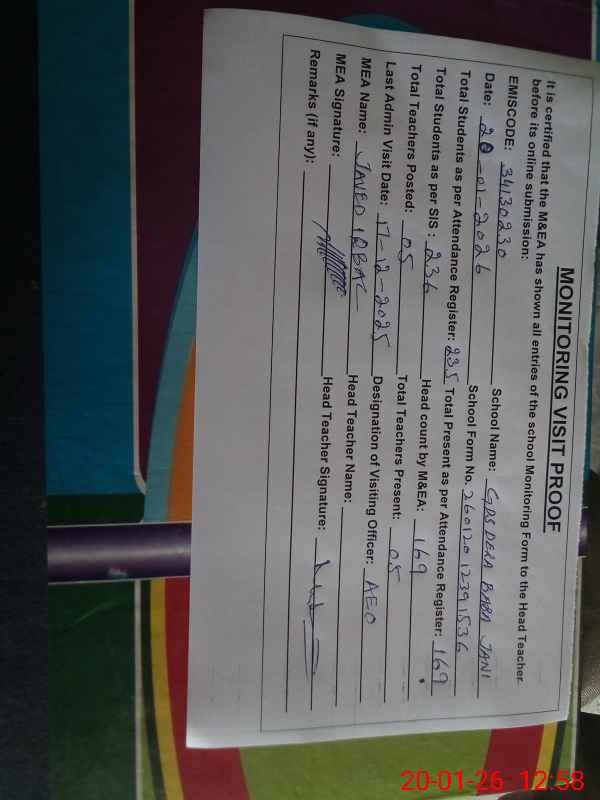 MONITORING VISIT PROOF
It is certified that the M&EA has shown all entries of the school Monitoring Form to the Head Teacher
before its online submission:
EMISCODE: 34130230 School Name: GPS DERA BABA JANI
Date: 20-01-2026 School Form No. 26012012391536
Total Students as per Attendance Register: 235 Total Present as per Attendance Register: 169
Total Students as per SIS : 236 Head count by M&EA: 169
Total Teachers Posted: 05 Total Teachers Present: 05
Last Admin Visit Date: 17-12-2025 Designation of Visiting Officer: AEO
MEA Name: JAVED IQBAL Head Teacher Name:
MEA Signature: Head Teacher Signature:
Remarks (if any):
20-01-26 12:58